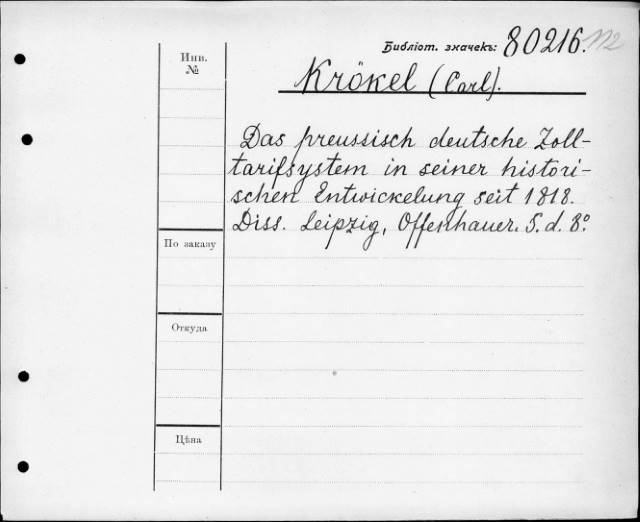 Библіот. значекъ: 80216. 112
Инв. №
Krökel (Carl).
Das preussisch deutsche Zoll-
tarifsystem in seiner histori-
schen Entwickelung seit 1818.
Diss. Leipzig, Offenhauer. S. d. 8°.
По заказу
Откуда
Цѣна